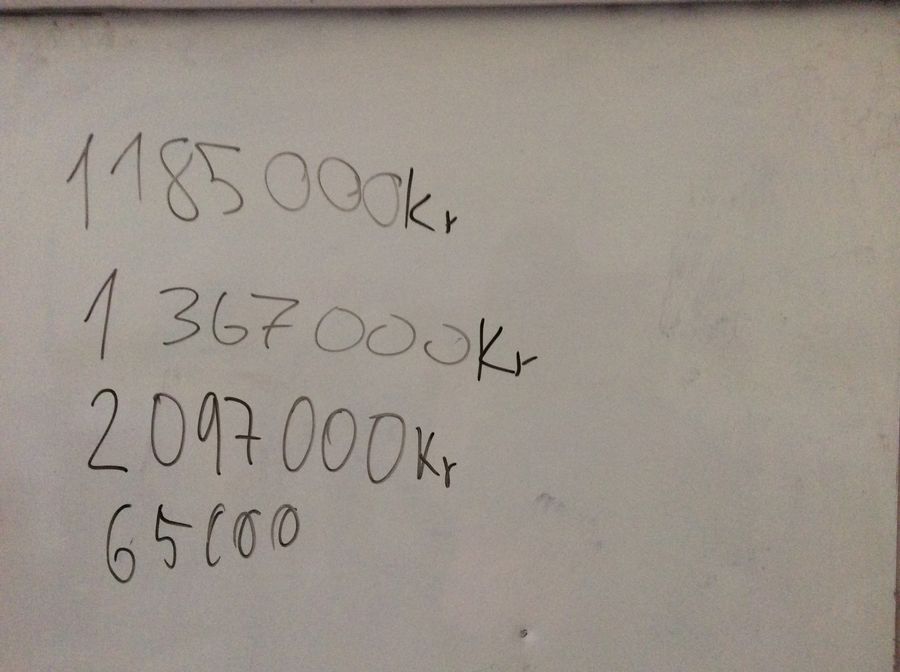 1185000kr
1 367000Kr
2097000Kr
65000